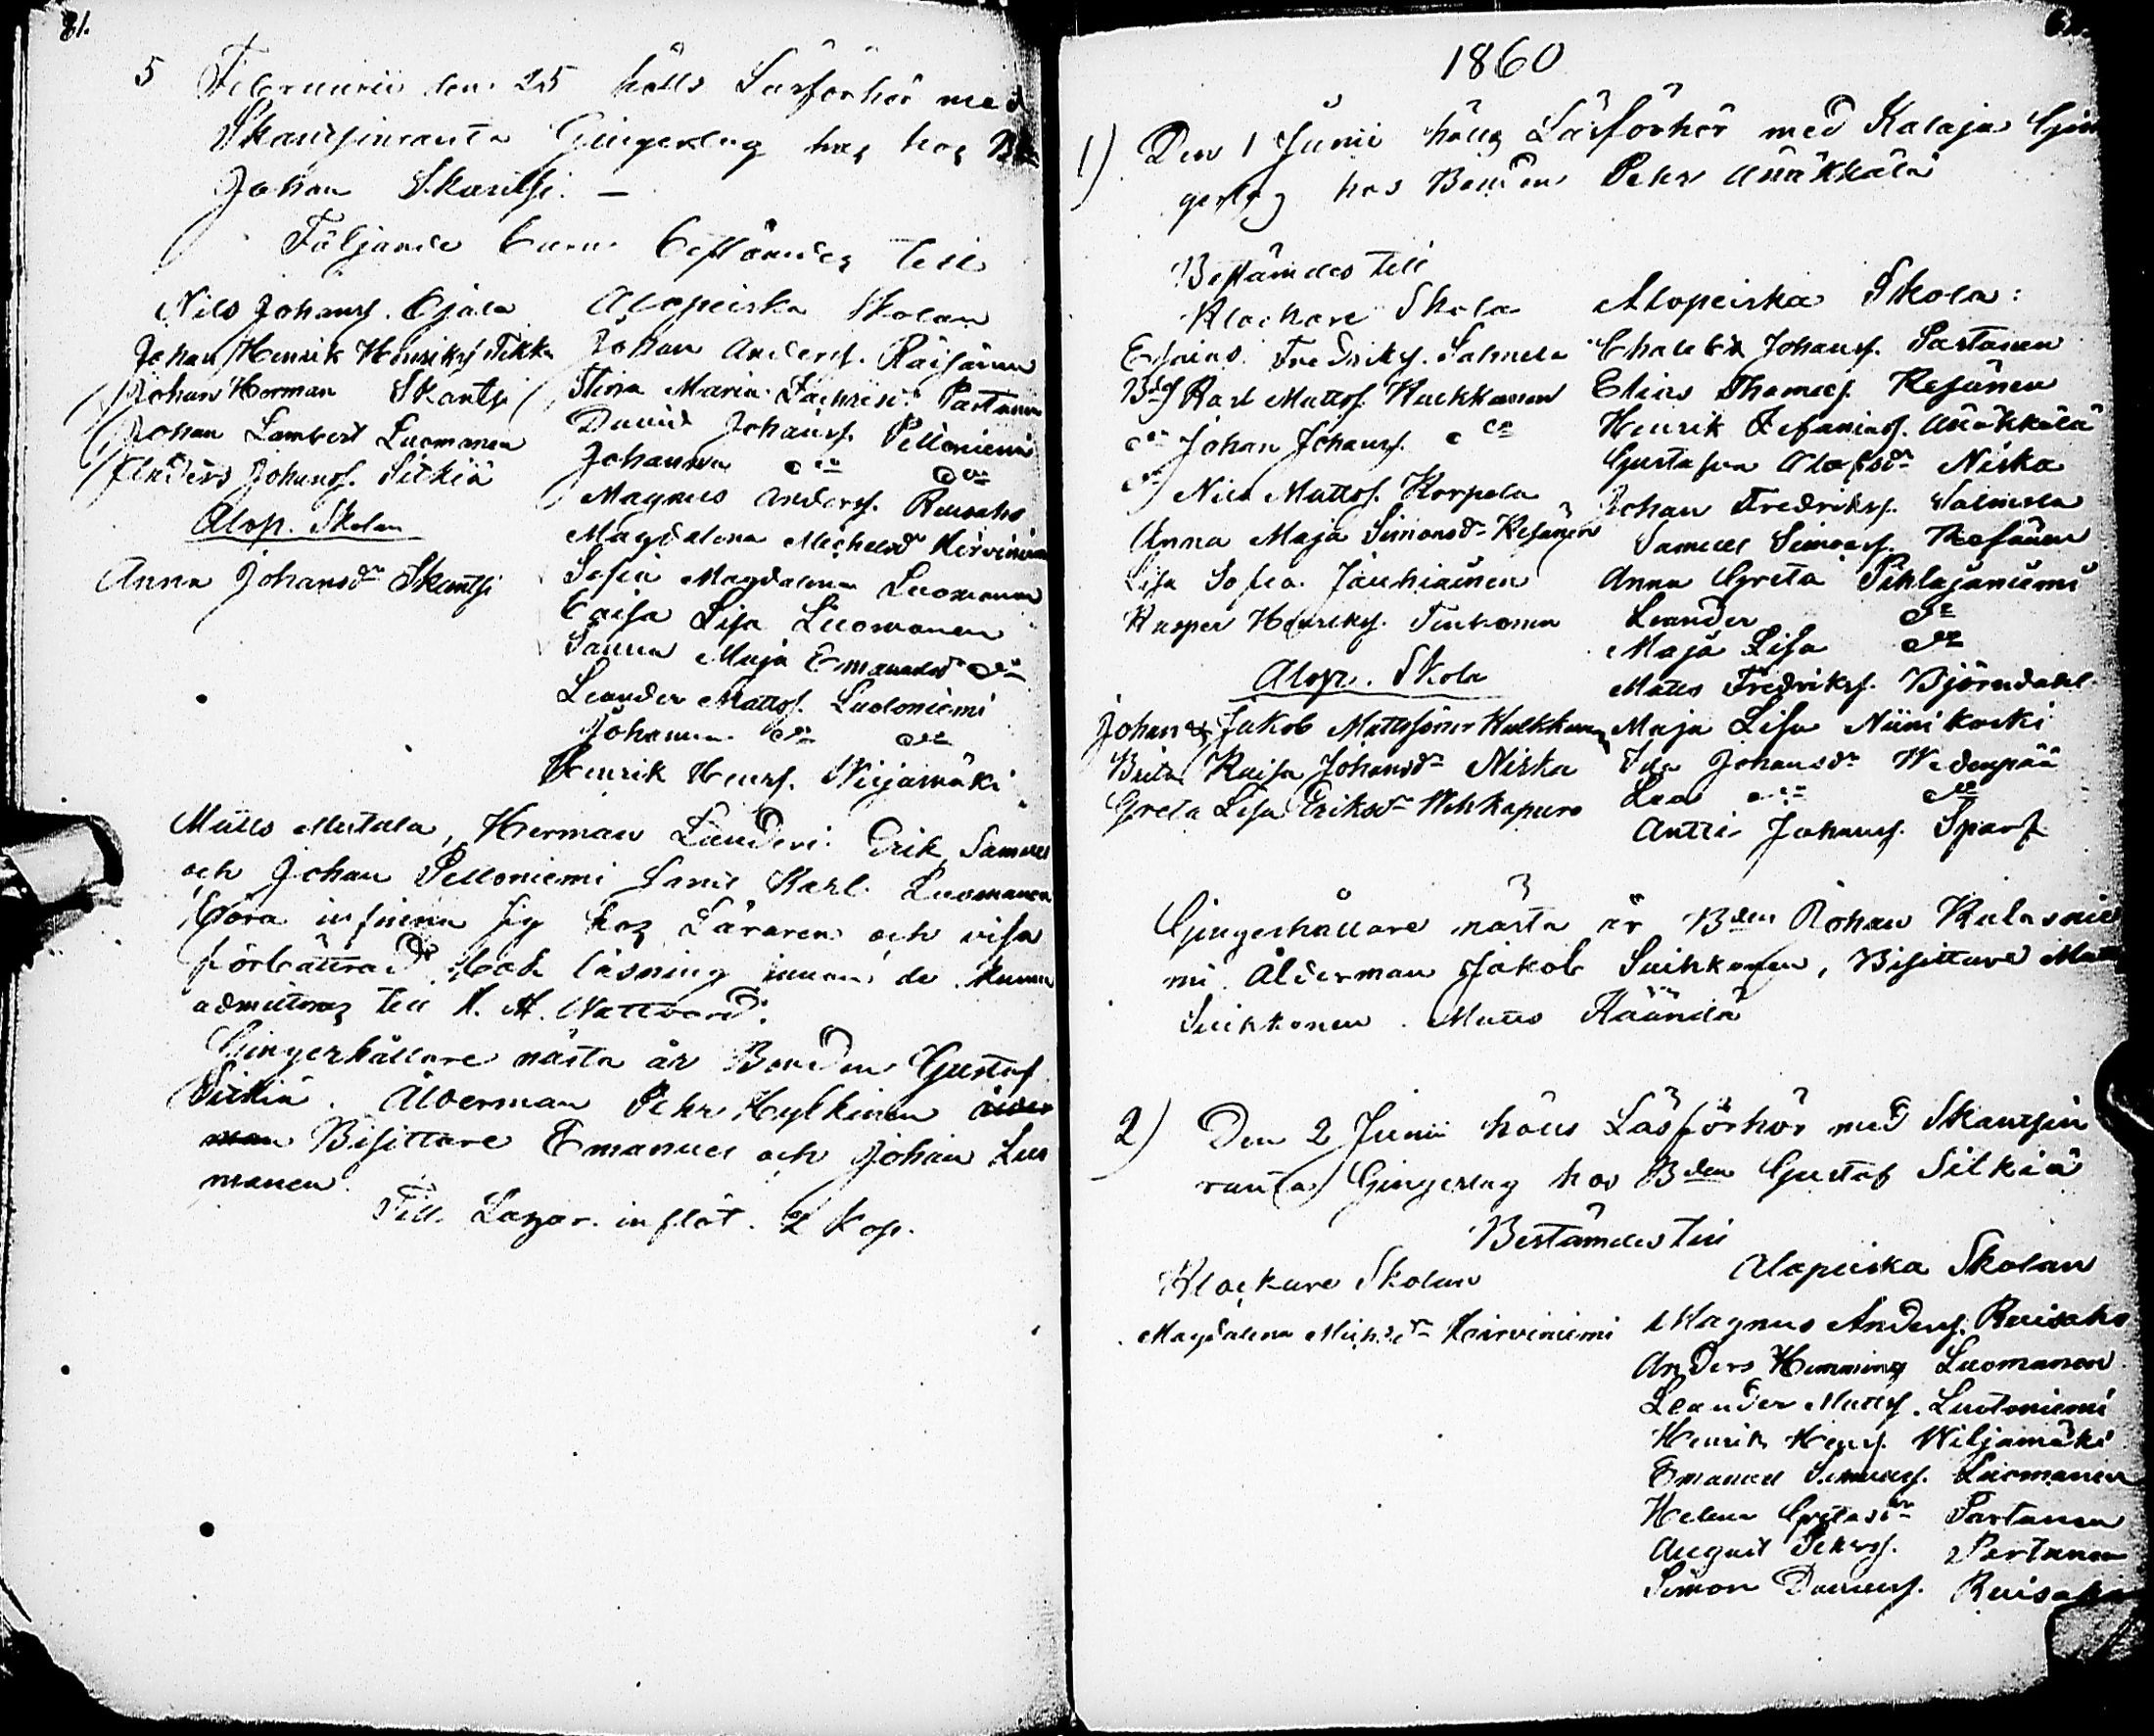 81.
5 Februarii den 25 hölls Läsförhör med
Skantsinranta Gingerlag hos
Johan Skantsi. —
Följande barn bestämdes till
Nils Johanss. Ojala
Johan Henrik Henrikss. Tikka
Johan Herman Skantsi
Johan Lambert Luomanen
Anders Johanss. Sitkiä
Alop. Skolan
Anna Johansdr Skantsi
Alopeiska Skolan
Johan Anderss. Räisänen
Stina Maria Partanen
David Johanss. Pelloniemi
Johanna do do
Magnus Anderss. Ruisaho
Magdalena Michelsdr Hirviniemi
Sofia Magdalena Luomanen
Caisa Lisa Luomanen
Sanna Maja Emanuelsdr do
Leander Mattss. Luotoniemi
Johanna do do
Henrik Henrs. Wiljamäki
Matts Mertala, Herman Landeri Erik, Samuel
och Johan Pelloniemi samt Karl Luomanen
böra infinna sig hos Läraren och visa
förbättrad bok läsning innan de kunna
admitteras till H. H. Nattvard.
Gingerhållare nästa år Bonden Gustaf
Sitkiä. Ålderman Pehr Hylkinen ålder
man Bisittare Emanuel och Johan Luo
manen.
Till Lazar. inflöt. 2 kop.
1860
1) Den 1 Junii hölls Läsförhör med Kalaja Gin
gerlag hos Bonden Pehr Anäkkälä
Bestämdes till
Klockare Skola
Esaias Fredrikss. Salmela
Karl Mattss. Hukkanen
do Johan Johanss. do
Nils Mattss. Korpela
Anna Maja Simonsdr Kesänen
Lisa Sofia Jauhiainen
Kasper Henrikss. Tenhonen
Alop. Skola
Johan & Jakob Mattssöner Hukkanen
Brita Kaisa Johansdr Niska
Greta Lisa Eriksdr Wehkapuro
Alopeiska Skola:
Johanss. Partanen
Elias Thomass. Kesänen
Henrik Zefaniass. Anäkkälä
Gustafva Alofsdr Niska
Johan Fredrikss. Salmela
Samuel Simonss. Kesänen
Anna Greta Pihlajaniemi
Leander do
Maja Lisa do
Matts Fredrikss. Björndahl
Maja Lisa Niinikoski
Ida Johansdr Wedenpää
Lea do do
Antti Johanss. Sparf
Gingerhållare nästa år Bden Johan Kulasnie
mi. Ålderman Jakob Suihkonen, Bisittare
Suihkonen. Matts Häändä
2) Den 2 Junii hölls Läsförhör med Skantsin
ranta Gingerlag hos Bden Gustaf Sitkiä
Bestämdes till
Klockare Skolan
Magdalena Michelsdr Hirviniemi
Alopeiska Skolan
Magnus Anderss. Ruisaho
Anders Hemming Luomanen
Leander Mattss. Luotoniemi
Henrik Henrs. Wiljamäki
Emanuel Samuelss. Luomanen
Helena Gretasdr Partanen
August Pehrss. Partanen
Simon Danielss. Ruisaho